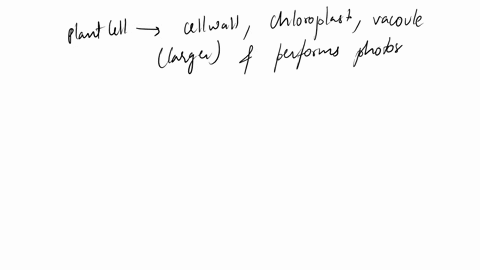 plant cell → cellwall, chloroplast, vacoule
(larger) & performs photos